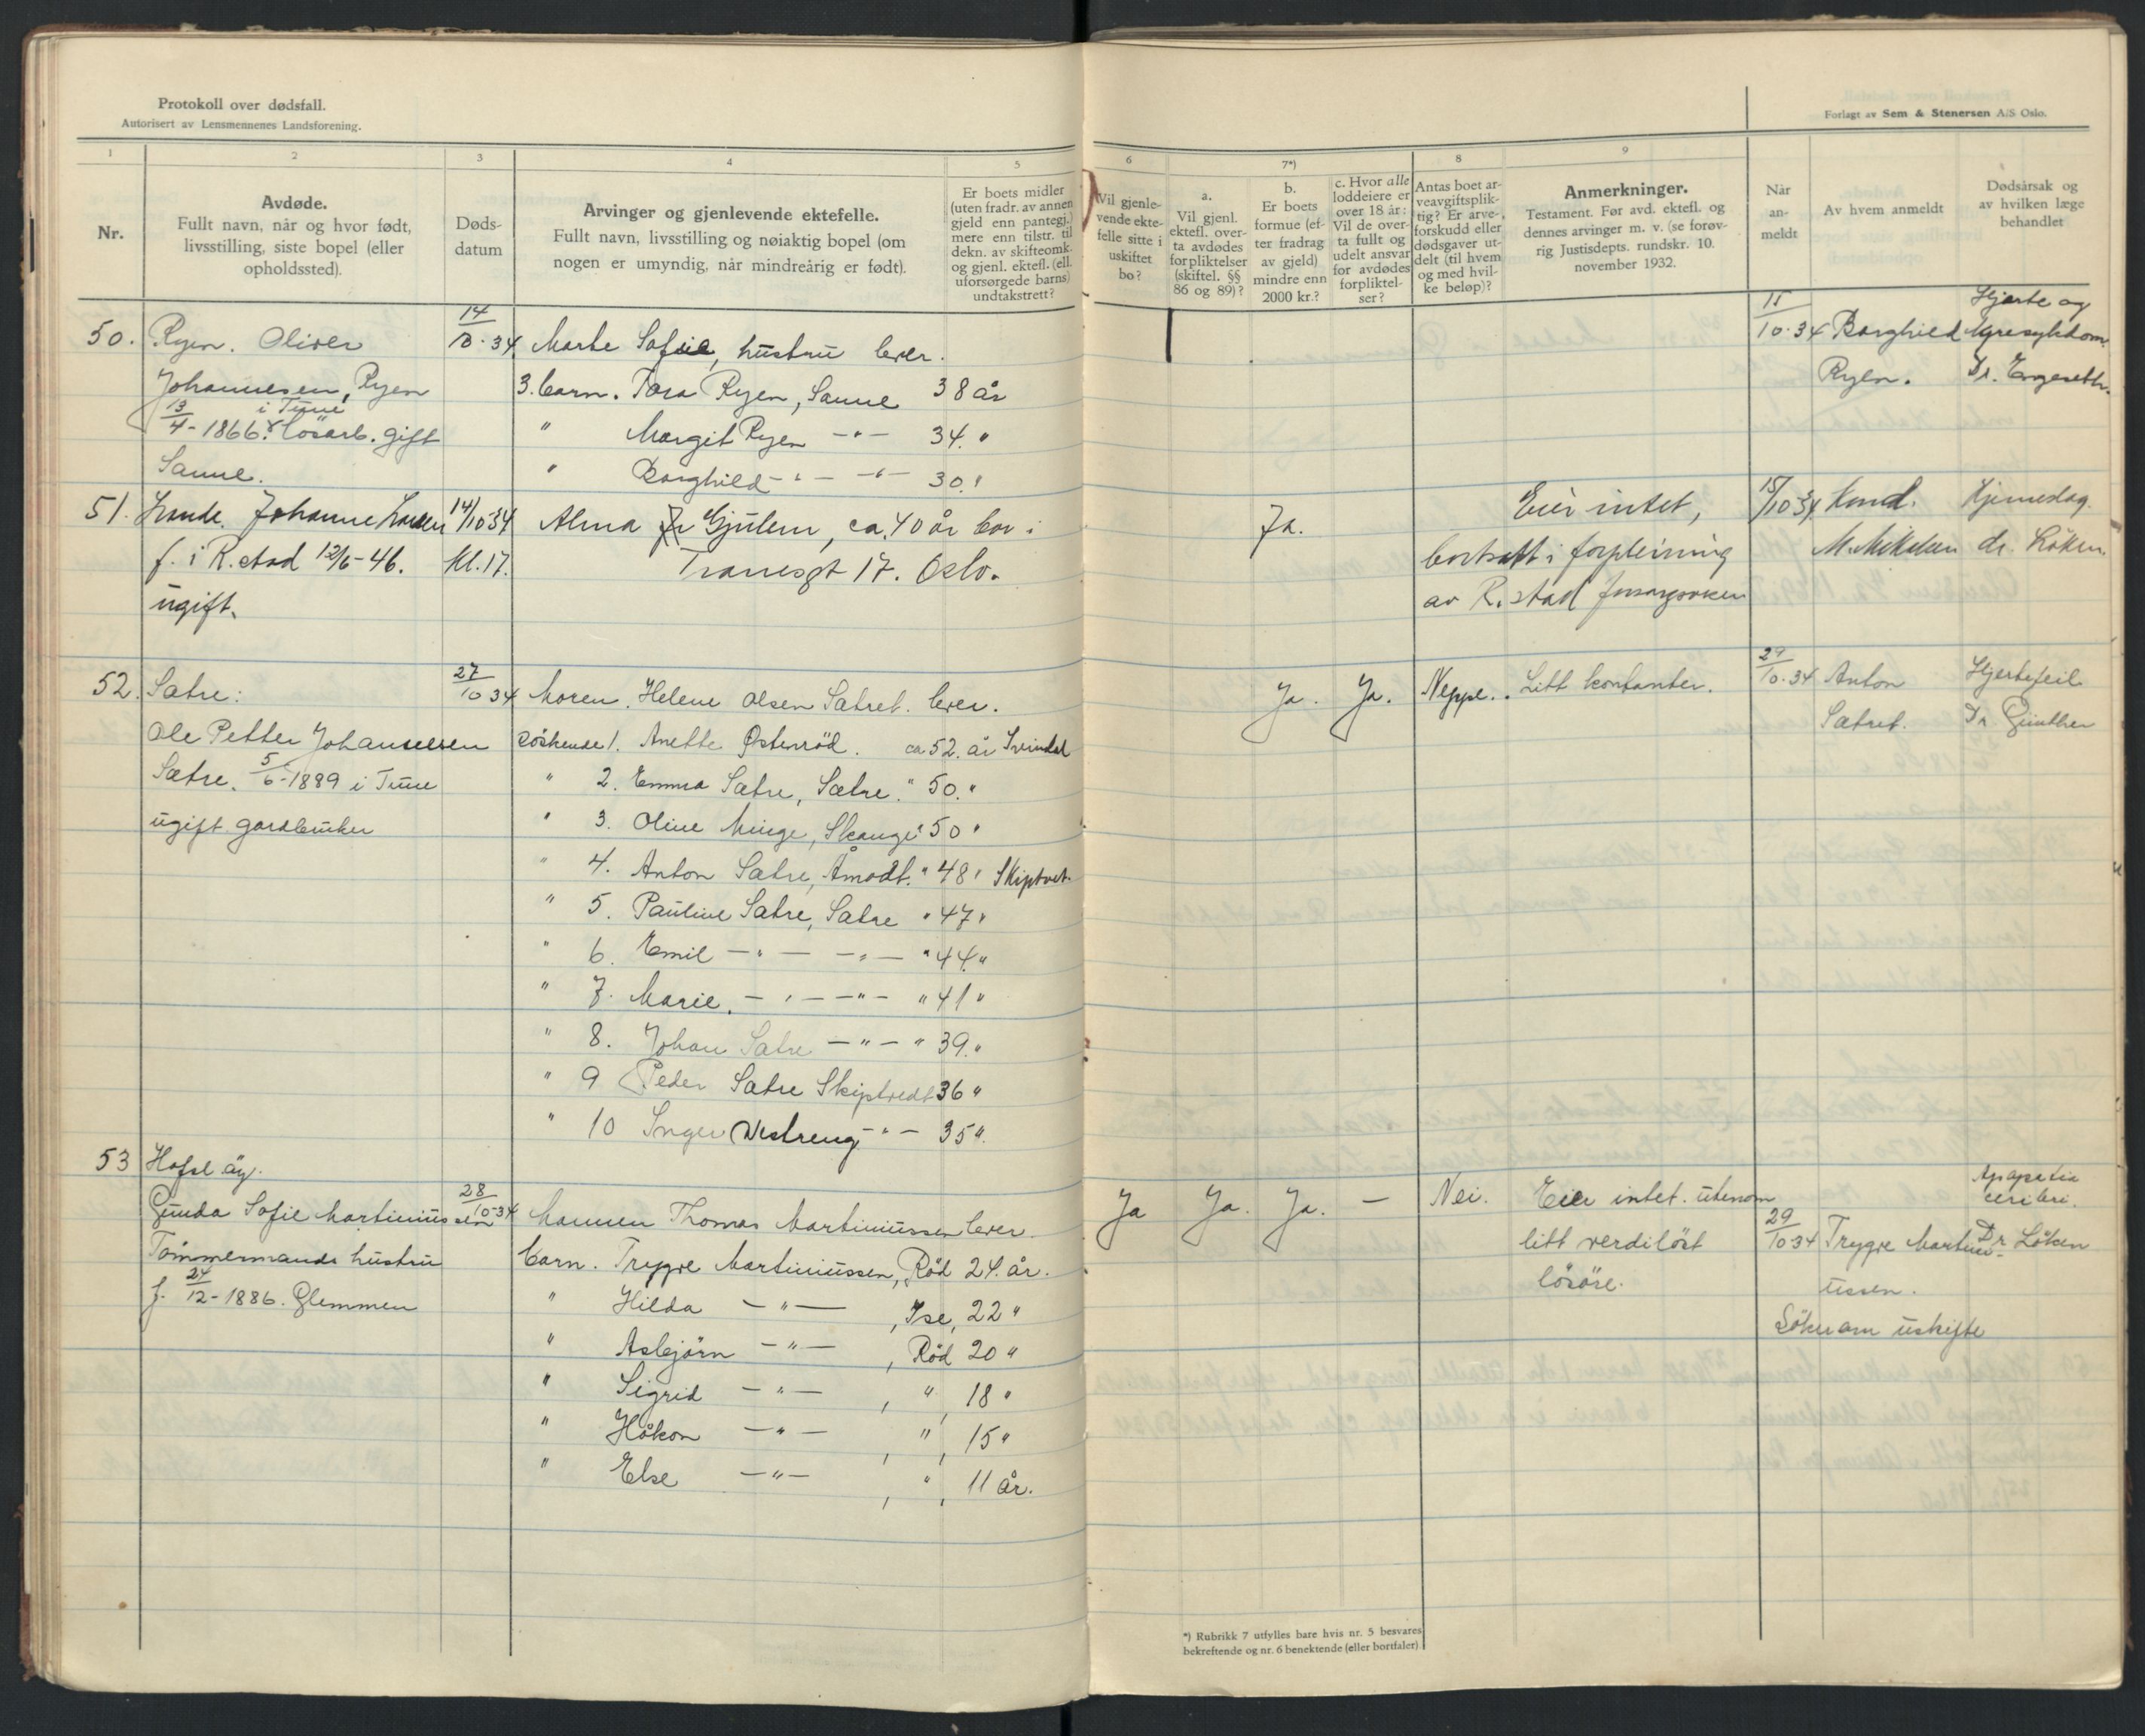 Protokoll over dødsfall.
Autorisert av Lensmennenes Landsforening.
Forlagt av Sem & Stenersen A/S Oslo.
1
2
3
4
5
6
7*)
8
9
Nr.
Avdøde.
Fullt navn, når og hvor født,
livsstilling, siste bopel (eller
opholdssted).
Døds-
datum
Arvinger og gjenlevende ektefelle.
Fullt navn, livsstilling og nøiaktig bopel (om
nogen er umyndig, når mindreårig er født).
Er boets midler
(uten fradr. av annen
gjeld enn pantegj.)
mere enn tilstr. til
dekn. av skifteomk.
og gjenl. ektefl. (ell.
uforsørgede barns)
undtakstrett?
Vil gjenle-
vende ekte-
felle sitte i
uskiftet
bo?
a.
Vil gjenl.
ektefl. over-
ta avdødes
forpliktelser
(skiftel. §§
86 og 89)?
b.
Er boets
formue (ef-
ter fradrag
av gjeld)
mindre enn
2000 kr.?
c. Hvor alle
loddeiere er
over 18 år:
Vil de over-
ta fullt og
udelt ansvar
for avdødes
forpliktel-
ser?
Antas boet ar-
veavgiftsplik-
tig? Er arve-
forskudd eller
dødsgaver ut-
delt (til hvem
og med hvil-
ke beløp)?
Anmerkninger.
Testament. Før avd. ektefl. og
dennes arvinger m. v. (se forøv-
rig Justisdepts. rundskr. 10.
november 1932.
Når
an-
meldt
Av hvem anmeldt
Dødsårsak og
av hvilken læge
behandlet
50. Ryen. Oliver
Johannesen, Ryen
i Tune
13/4-1866. Lösarb. gift
Sanne.
14/10-34
Marte Sofie, hustru lever.
3. barn. Tora Ryen, Sanne 38 år
" Margit Ryen —"— 34. "
" Borghild —"— —"— 30. "
11/10-34 Borghild
Ryen.
Hjerte og
Nyresykdom.
Dr. Engeseth.
51. Lande. Johanne
f. i R.stad 12/6-46.
ugift.
14/10 34
Kl. 17.
Alma Gjulem, ca. 40 år bor i
Tranesgt 17. Oslo.
Ja.
Eier intet,
bortsatt i forpleining
av R.stad
15/10 34
M. Mikelsen
dr. Löken.
52. Satre:
Ole Petter Johannessen
Sætre. 5/6-1889 i Tune
ugift gardbruker
27/10 34
Moren. Helene Olsen Satret. lever.
Söskende 1. Anette Østenröd. ca 52. år Svindal
" 2. Emma Satre, Sætre. " 50. "
" 3. Oline Minge, Skauge " 50 "
" 4. Anton Satre, Åmodt. " 48 " Skiptvet.
" 5. Pauline Satre, Satre " 47 "
" 6. Emil —"— —"— " 44. "
" 7. Marie. —"— —"— " 41 "
" 8. Johan Satre —"— " 39. "
" 9 Peder Satre Skiptvedt 36 "
" 10 Inger Vestreng —"— 35 ".
Ja. Ja. Neppe. Litt kontanter.
10-34 Anton
Satret.
Hjertefeil
Dr Günther
53
Gunda Sofie Martiniussen
Tömmermands hustru
f. 24/12-1886. Glemmen
28/10-34
Mannen Thomas Martiniussen lever.
barn. Trygve Martiniussen, Röd 24. år.
" Hilda —"— , Ise, 22 "
" Asbjörn —"— , Röd 20 "
" Sigrid —"— , " 18 "
" Håkon —"— , " , 15 "
" Else —"— , " , 11 år.
Ja Ja. Ja. — Nei.
Eier intet. utenom
litt verdilöst
lösöre.
29/10-34 Trygve Martini-
ussen.
Dr Löken
Söker om uskifte
*) Rubrikk 7 utfylles bare hvis nr. 5 besvares
bekreftende og nr. 6 benektende (eller bortfaler)